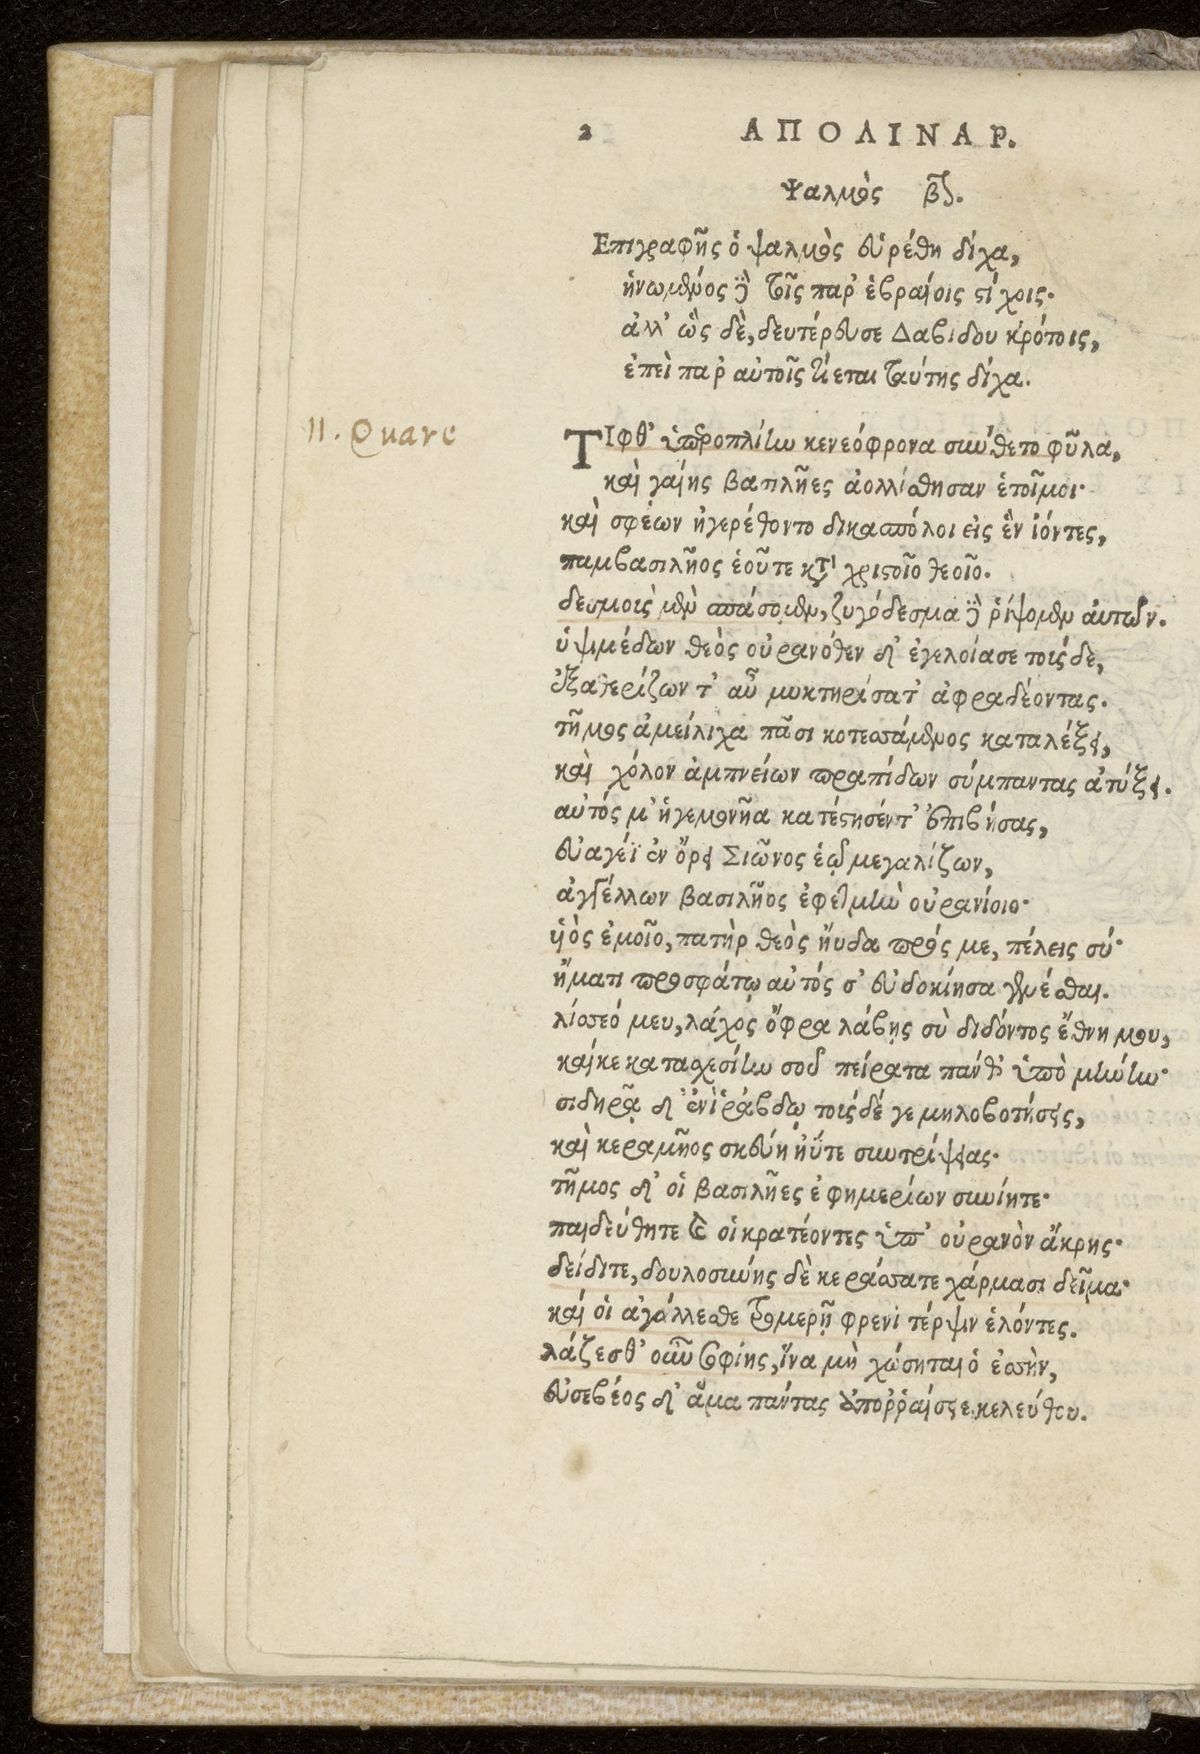 2 ΑΠΟΛΙΝΑΡ.
Ψαλμὸς β.
Επιγραφῆς ὁ ψαλμὸς εὑρέθη δίχα,
ἡνωμένος δὲ τοῖς παρ' ἑβραίοις στίχοις·
ἀλλ' ὣς δὲ, δευτέρευσε Δαβίδου κρότοις,
ἐπεὶ παρ' αὐτοῖς κεῖται ταύτης δίχα.
II. Quare
ΤΙφθ' ὑπεροπλίην κενεόφρονα σύνθετο φῦλα,
καὶ γαίης βασιλῆες ἀολλίσθησαν ἑτοῖμοι·
καὶ σφέων ἠγερέθοντο δικασπόλοι εἰς ἓν ἰόντες,
παμβασιλῆος ἑοῦτε κατὰ χριστοῖο θεοῖο.
δεσμοὺς μὲν σπάσομεν, ζυγόδεσμα δὲ ῥίψομεν αὐτῶν.
ὑψιμέδων θεὸς οὐρανόθεν δ' ἐγελοίασε τούσδε,
ἐξαθερίζων τ' αὖ μυκτηρίσατ' ἀφραδέοντας.
τῆμος ἀμείλιχα πᾶσι κοτεσσάμενος καταλέξει,
καὶ χόλον ἀμπνείων πραπίδων σύμπαντας ἀτύξει.
αὐτός μ' ἡγεμονῆα κατέστησέντ' ἐπιβήσας,
εὐαγέϊ ἐν ὄρει Σιῶνος ἑοῦ μεγαλίζων,
ἀγγέλλων βασιλῆος ἐφετμὴν οὐρανίοιο·
υἱὸς ἐμοῖο, πατὴρ θεὸς ἤυδα πρός με, πέλεις σύ·
ἤματι προσφάτῳ αὐτός σ' εὐδοκίησα γενέσθαι.
λίσσεό μευ, λάχος ὄφρα λάβῃς σὺ διδόντος ἔθνη μου,
καίκε κατασχεσίην σοῦ πείρατα πάνθ' ὑπὸ μηνίην·
σιδηρᾷ δ' ἐνὶ ῥάβδῳ τούσδέ γε μηλοβοτήσεις,
καὶ κεραμῆος σκεύη ἠΰτε συντρίψεας·
τῆμος δ' οἱ βασιλῆες ἐφημερίων συνίητε·
παιδεύθητε δὲ οἱ κρατέοντες ὑπ' οὐρανὸν ἄκρης·
δείδιτε, δουλοσύνης δὲ κεράσσατε χάρμασι δεῖμα·
καί οἱ ἀγάλλεσθε τρομερῇ φρενὶ τέρψιν ἑλόντες.
λάζεσθ' οὖν σοφίης, ἵνα μὴ χώσηται ὁ ἐσσὴν,
εὐσεβέος δ' ἅμα πάντας ἀποῤῥαίσσε κελεύθου.